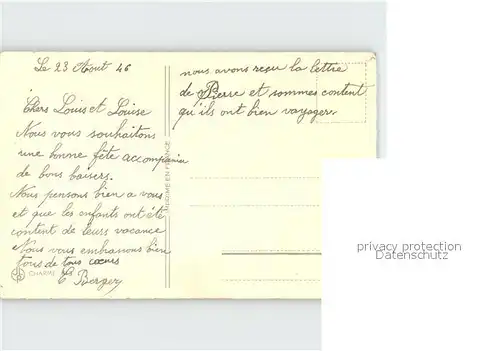 Le 23 Aout 46
Chers Louis et Louise
Nous vous souhaitons
une bonne fête accompania
de bons baisers.
Nous pensons bien a vous
et que les enfants ont été
content de leurs vacance
Nous vous embrassons bien
tous de tous cœurs
Berger
nous avons reçu la lettre
de Pierre et sommes content
qu'ils ont bien voyager.
IMPRIMÉ EN FRANCE
privacy protection
Datenschutz